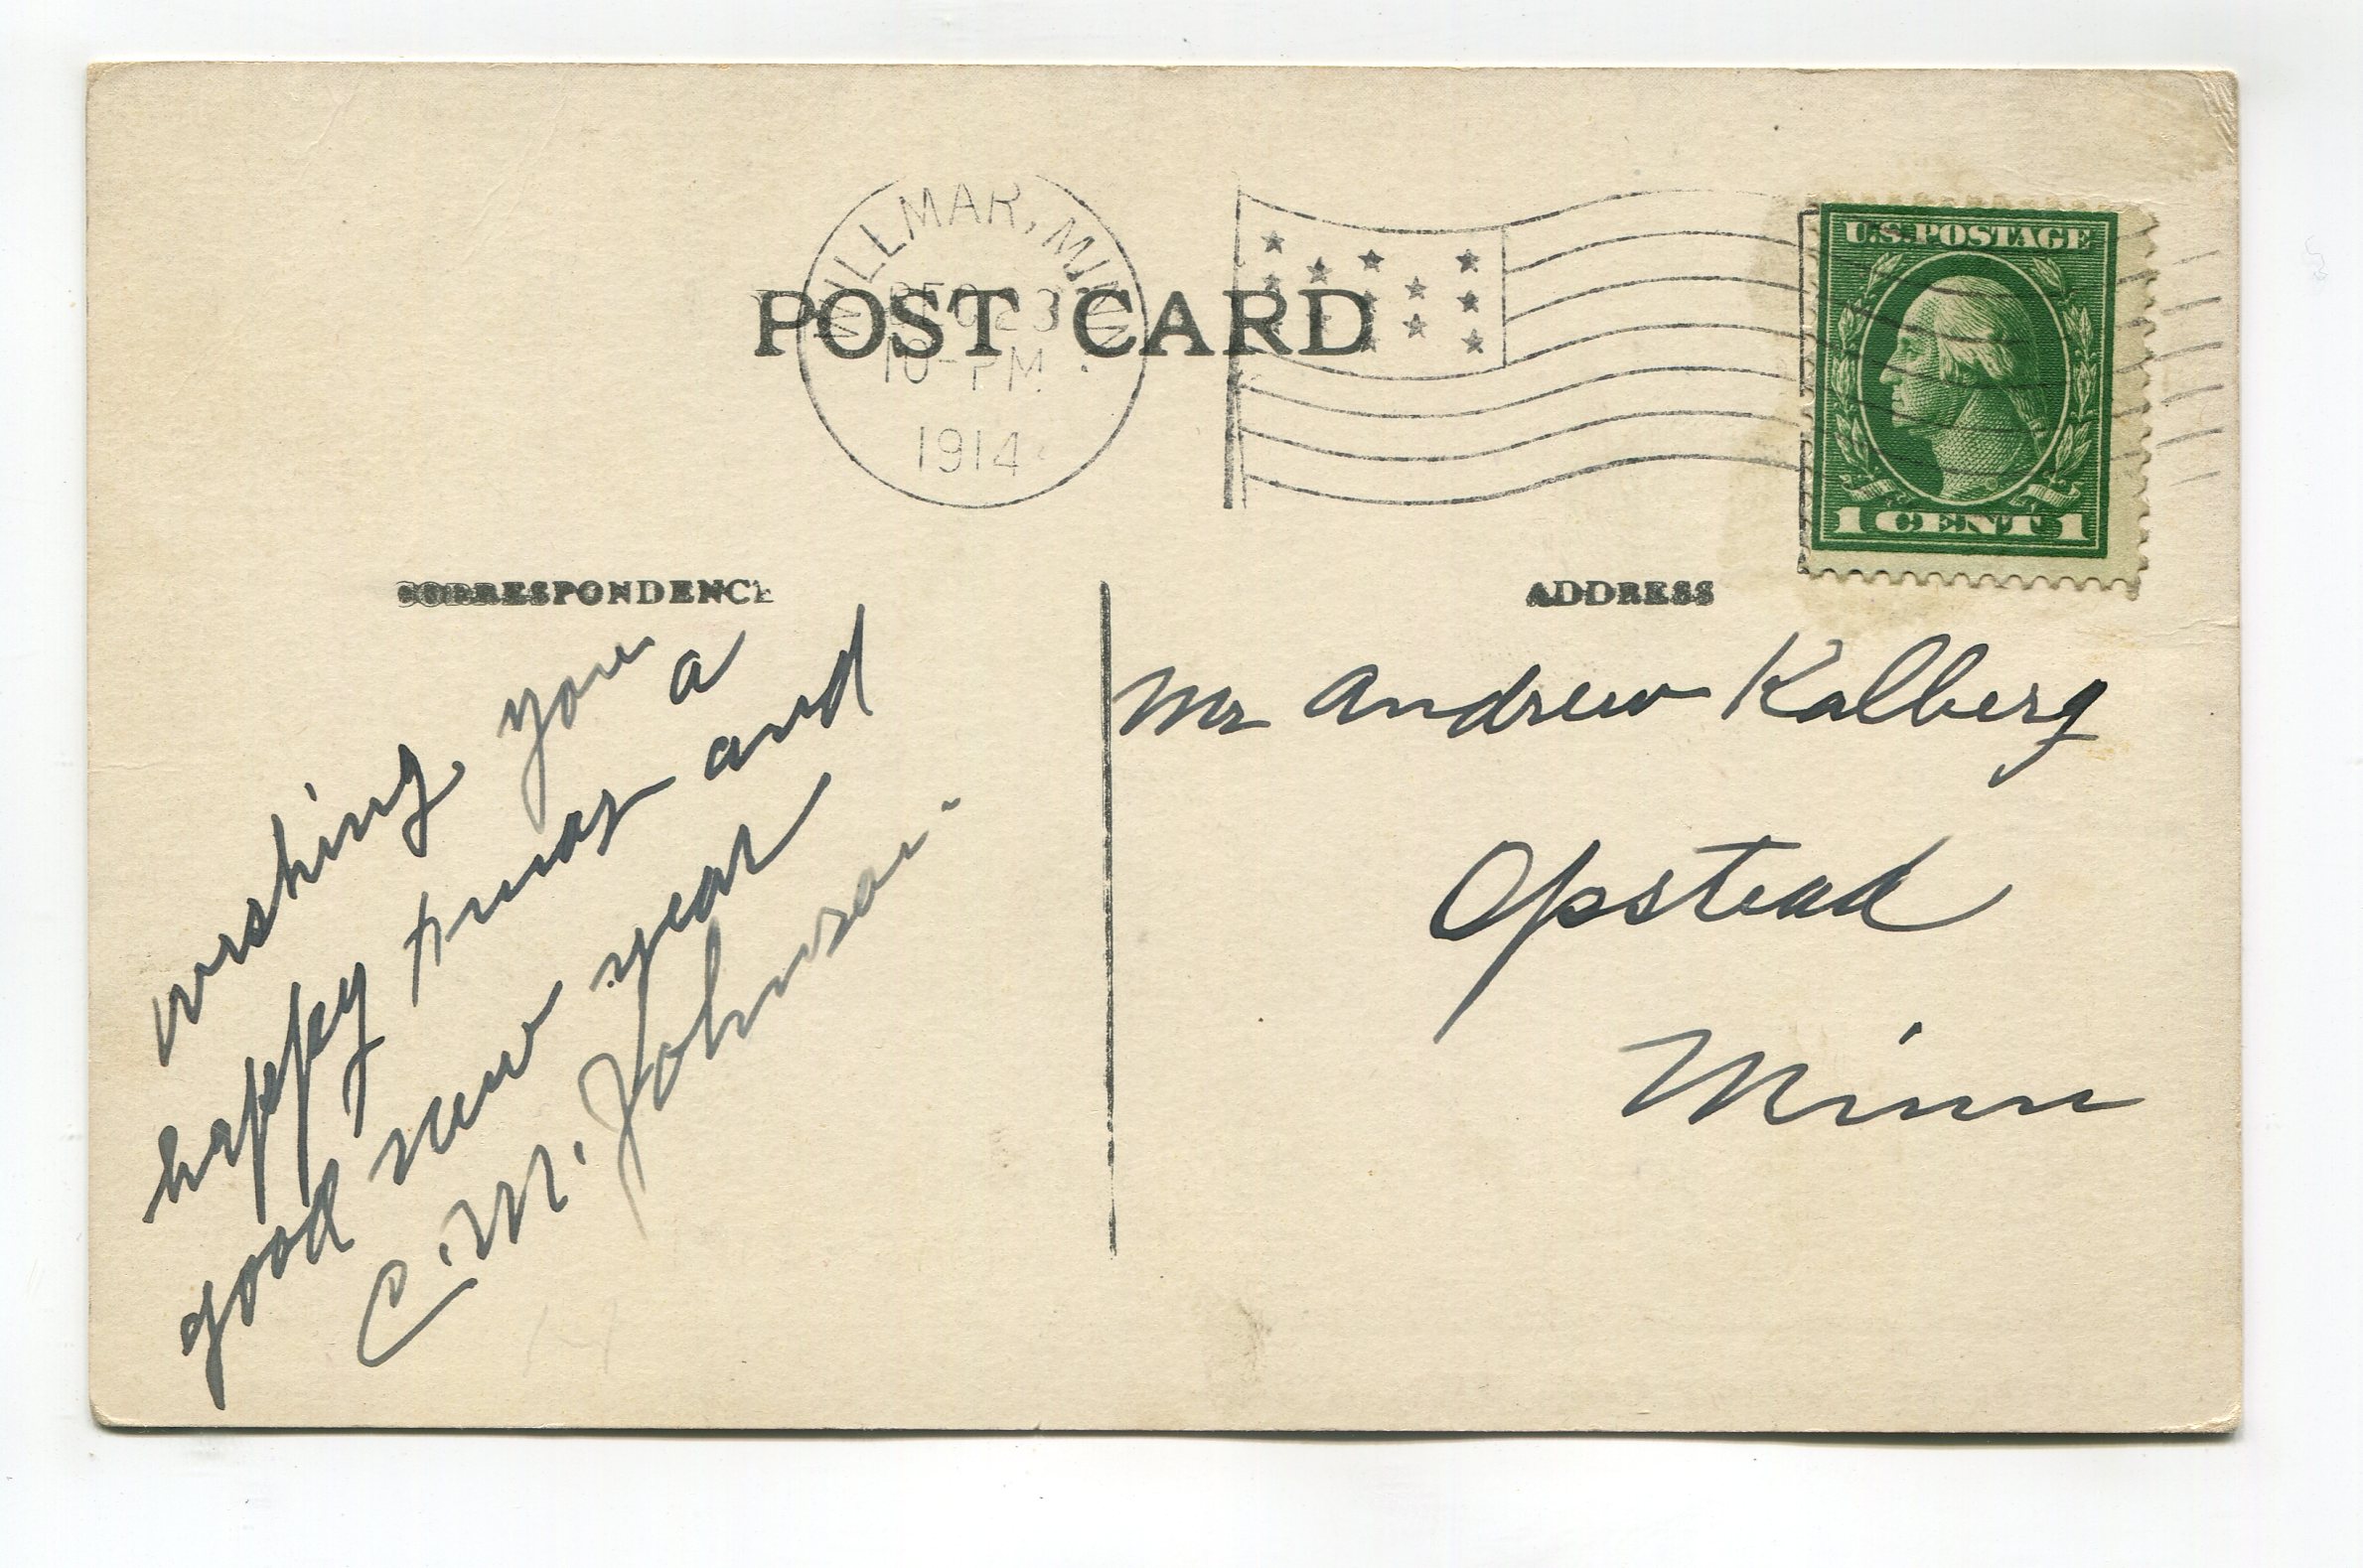 WILLMAR, MINN.
DEC 23
10-PM
1914
POST CARD
U.S. POSTAGE
1 CENT 1
CORRESPONDENCE
wishing you a
happy xmas and
good new year
C. M. Johnson.
ADDRESS
Mr Andrew Kalberg
Opstead
Minn